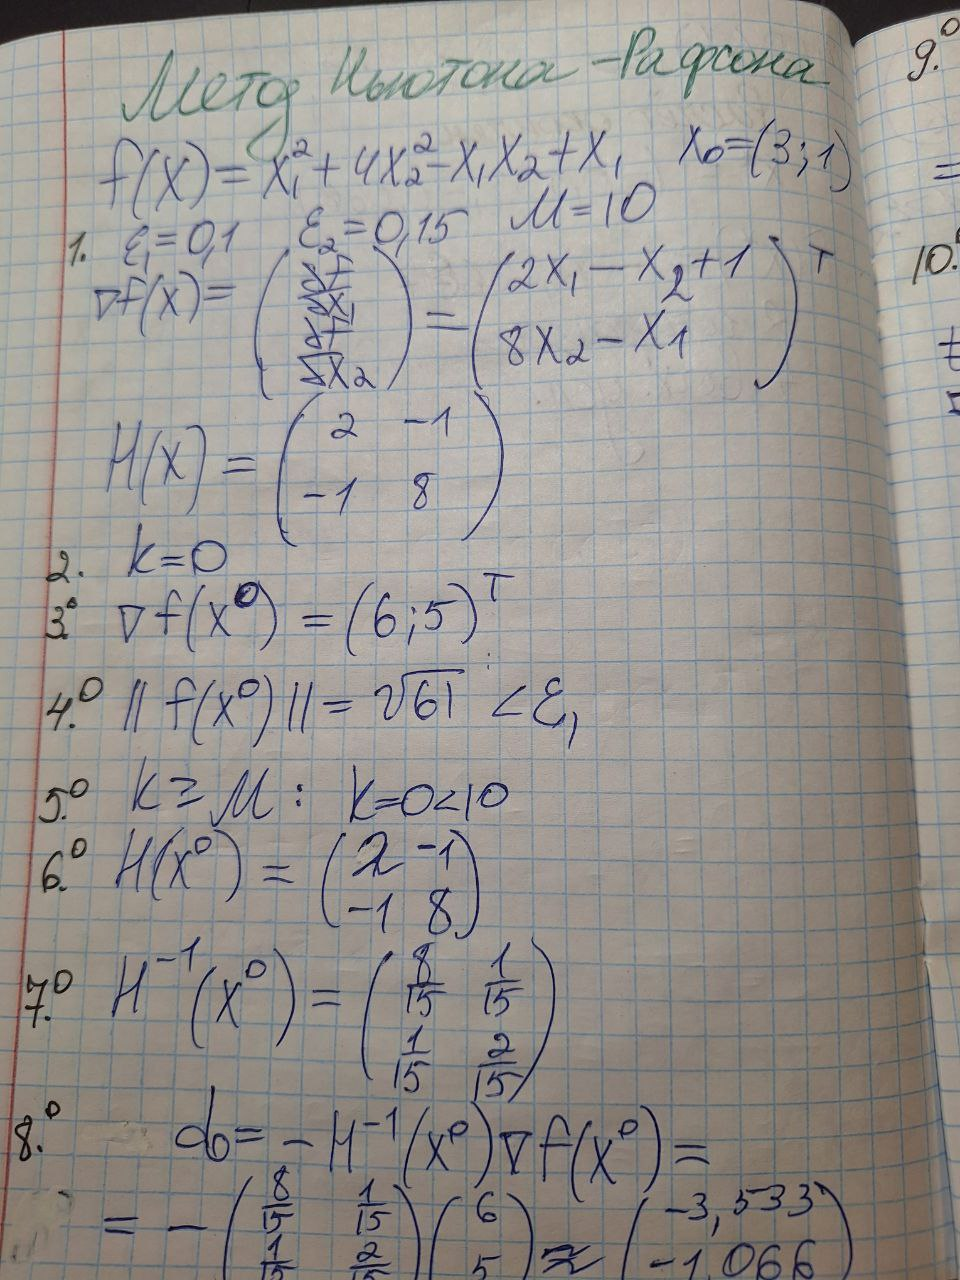 Метод Ньютона-Рафсона
f(x) = x₁² + 4x₂² - x₁x₂ + x₁ x₀ = (3;1)
1. ε₁ = 0,1 ε₂ = 0,15 M = 10
∇f(x) = ( ) = (2x₁ - x₂ + 1
8x₂ - x₁)ᵀ
H(x) = (2 -1
-1 8)
2. k = 0
3.⁰ ∇f(x⁰) = (6;5)ᵀ
4.⁰ || f(x⁰) || = √61 < ε₁
5.⁰ k ≥ M : k = 0 < 10
6.⁰ H(x⁰) = (2 -1
-1 8)
7.⁰ H⁻¹(x⁰) = (8/15 1/15
1/15 2/15)
8.⁰ d₀ = - H⁻¹(x⁰)∇f(x⁰) =
= - (8/15 1/15 (6 ≈ (-3,533
1/15 2/15) 5) -1,066)
9.⁰
=
10.⁰